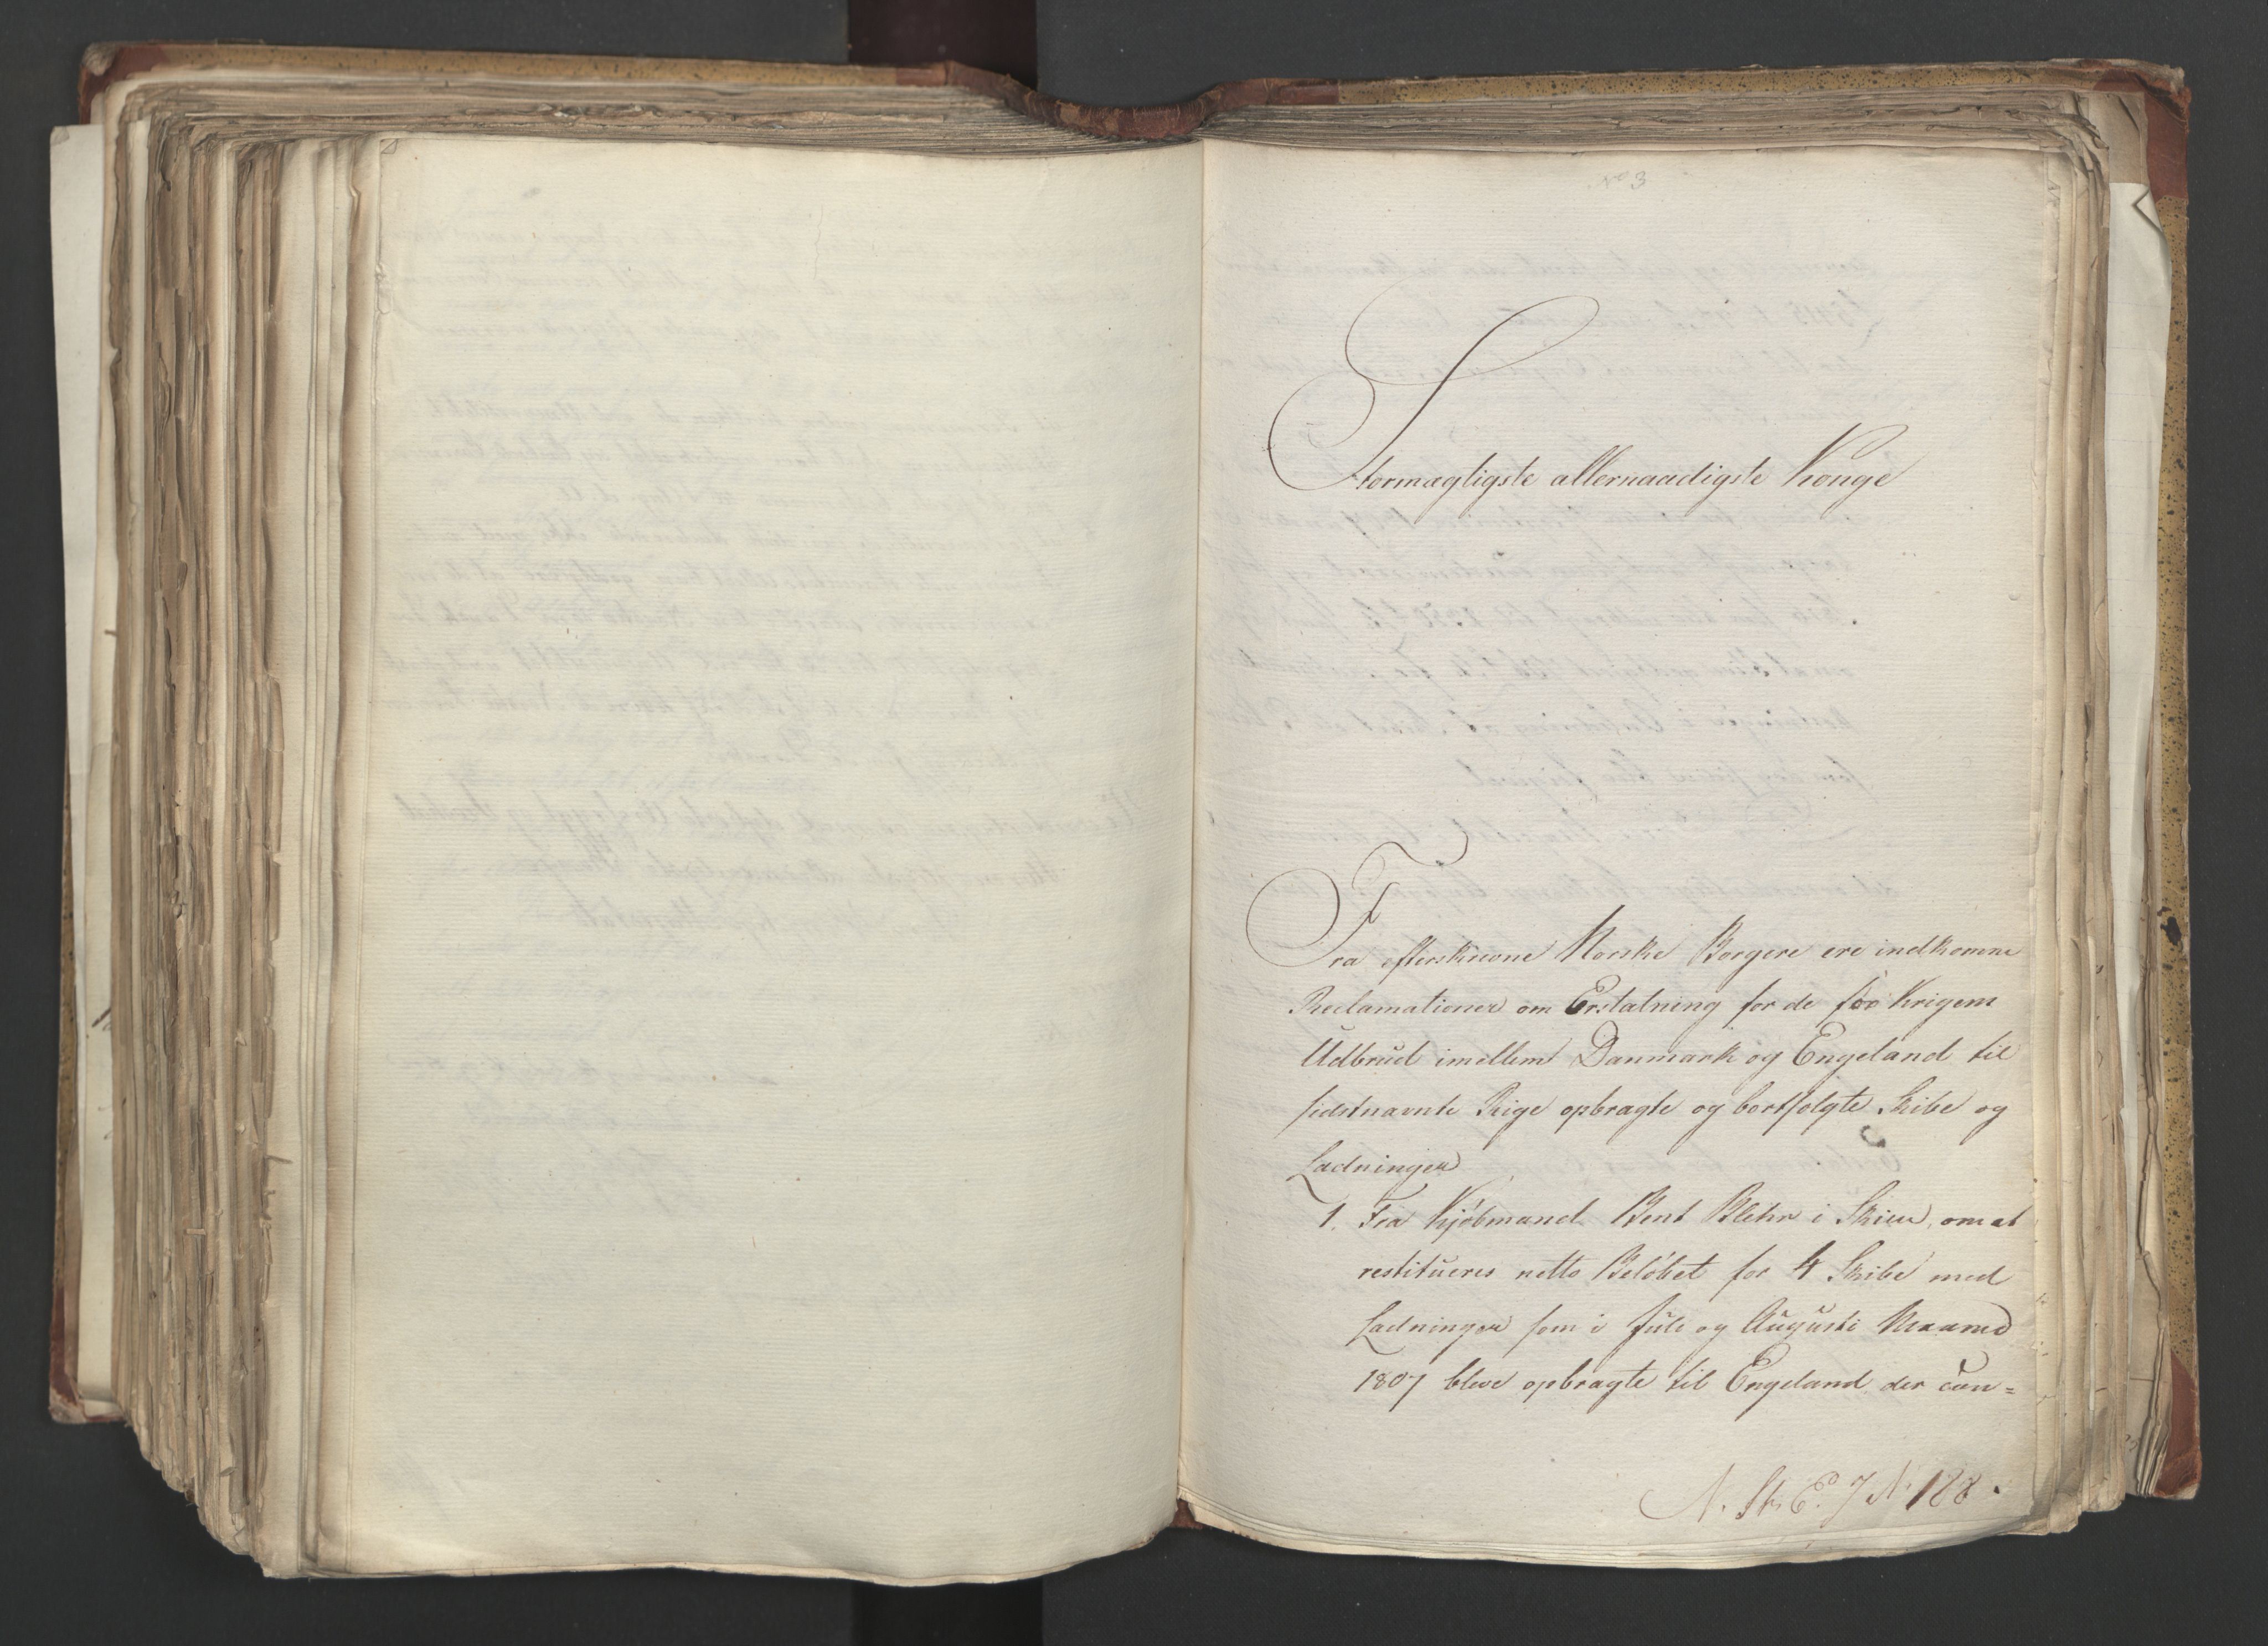 No 3
Stormægtigste allernaadigste Konge
Fra efterskrevne Norske Borgere ere indkomne
Reclamationer om Erstatning for de før Krigens
Udbrud imellem Danmark og Engeland til
sidstnævnte Rige opbragte og bortsolgte Skibe og
Ladninger
1. Fra Kjøbmand Bent Blehr i Skien, om at
restitueres netto Beløbet for 4 Skibe med
Ladninger som i Juli og Augusti Maaned
1807 bleve opbragte til Engeland der con=
N. St. E. J N. 188.